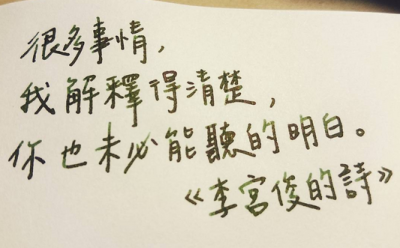 很多事情，
我解釋得清楚，
你也未必能聽的明白。
《李宮俊的詩》